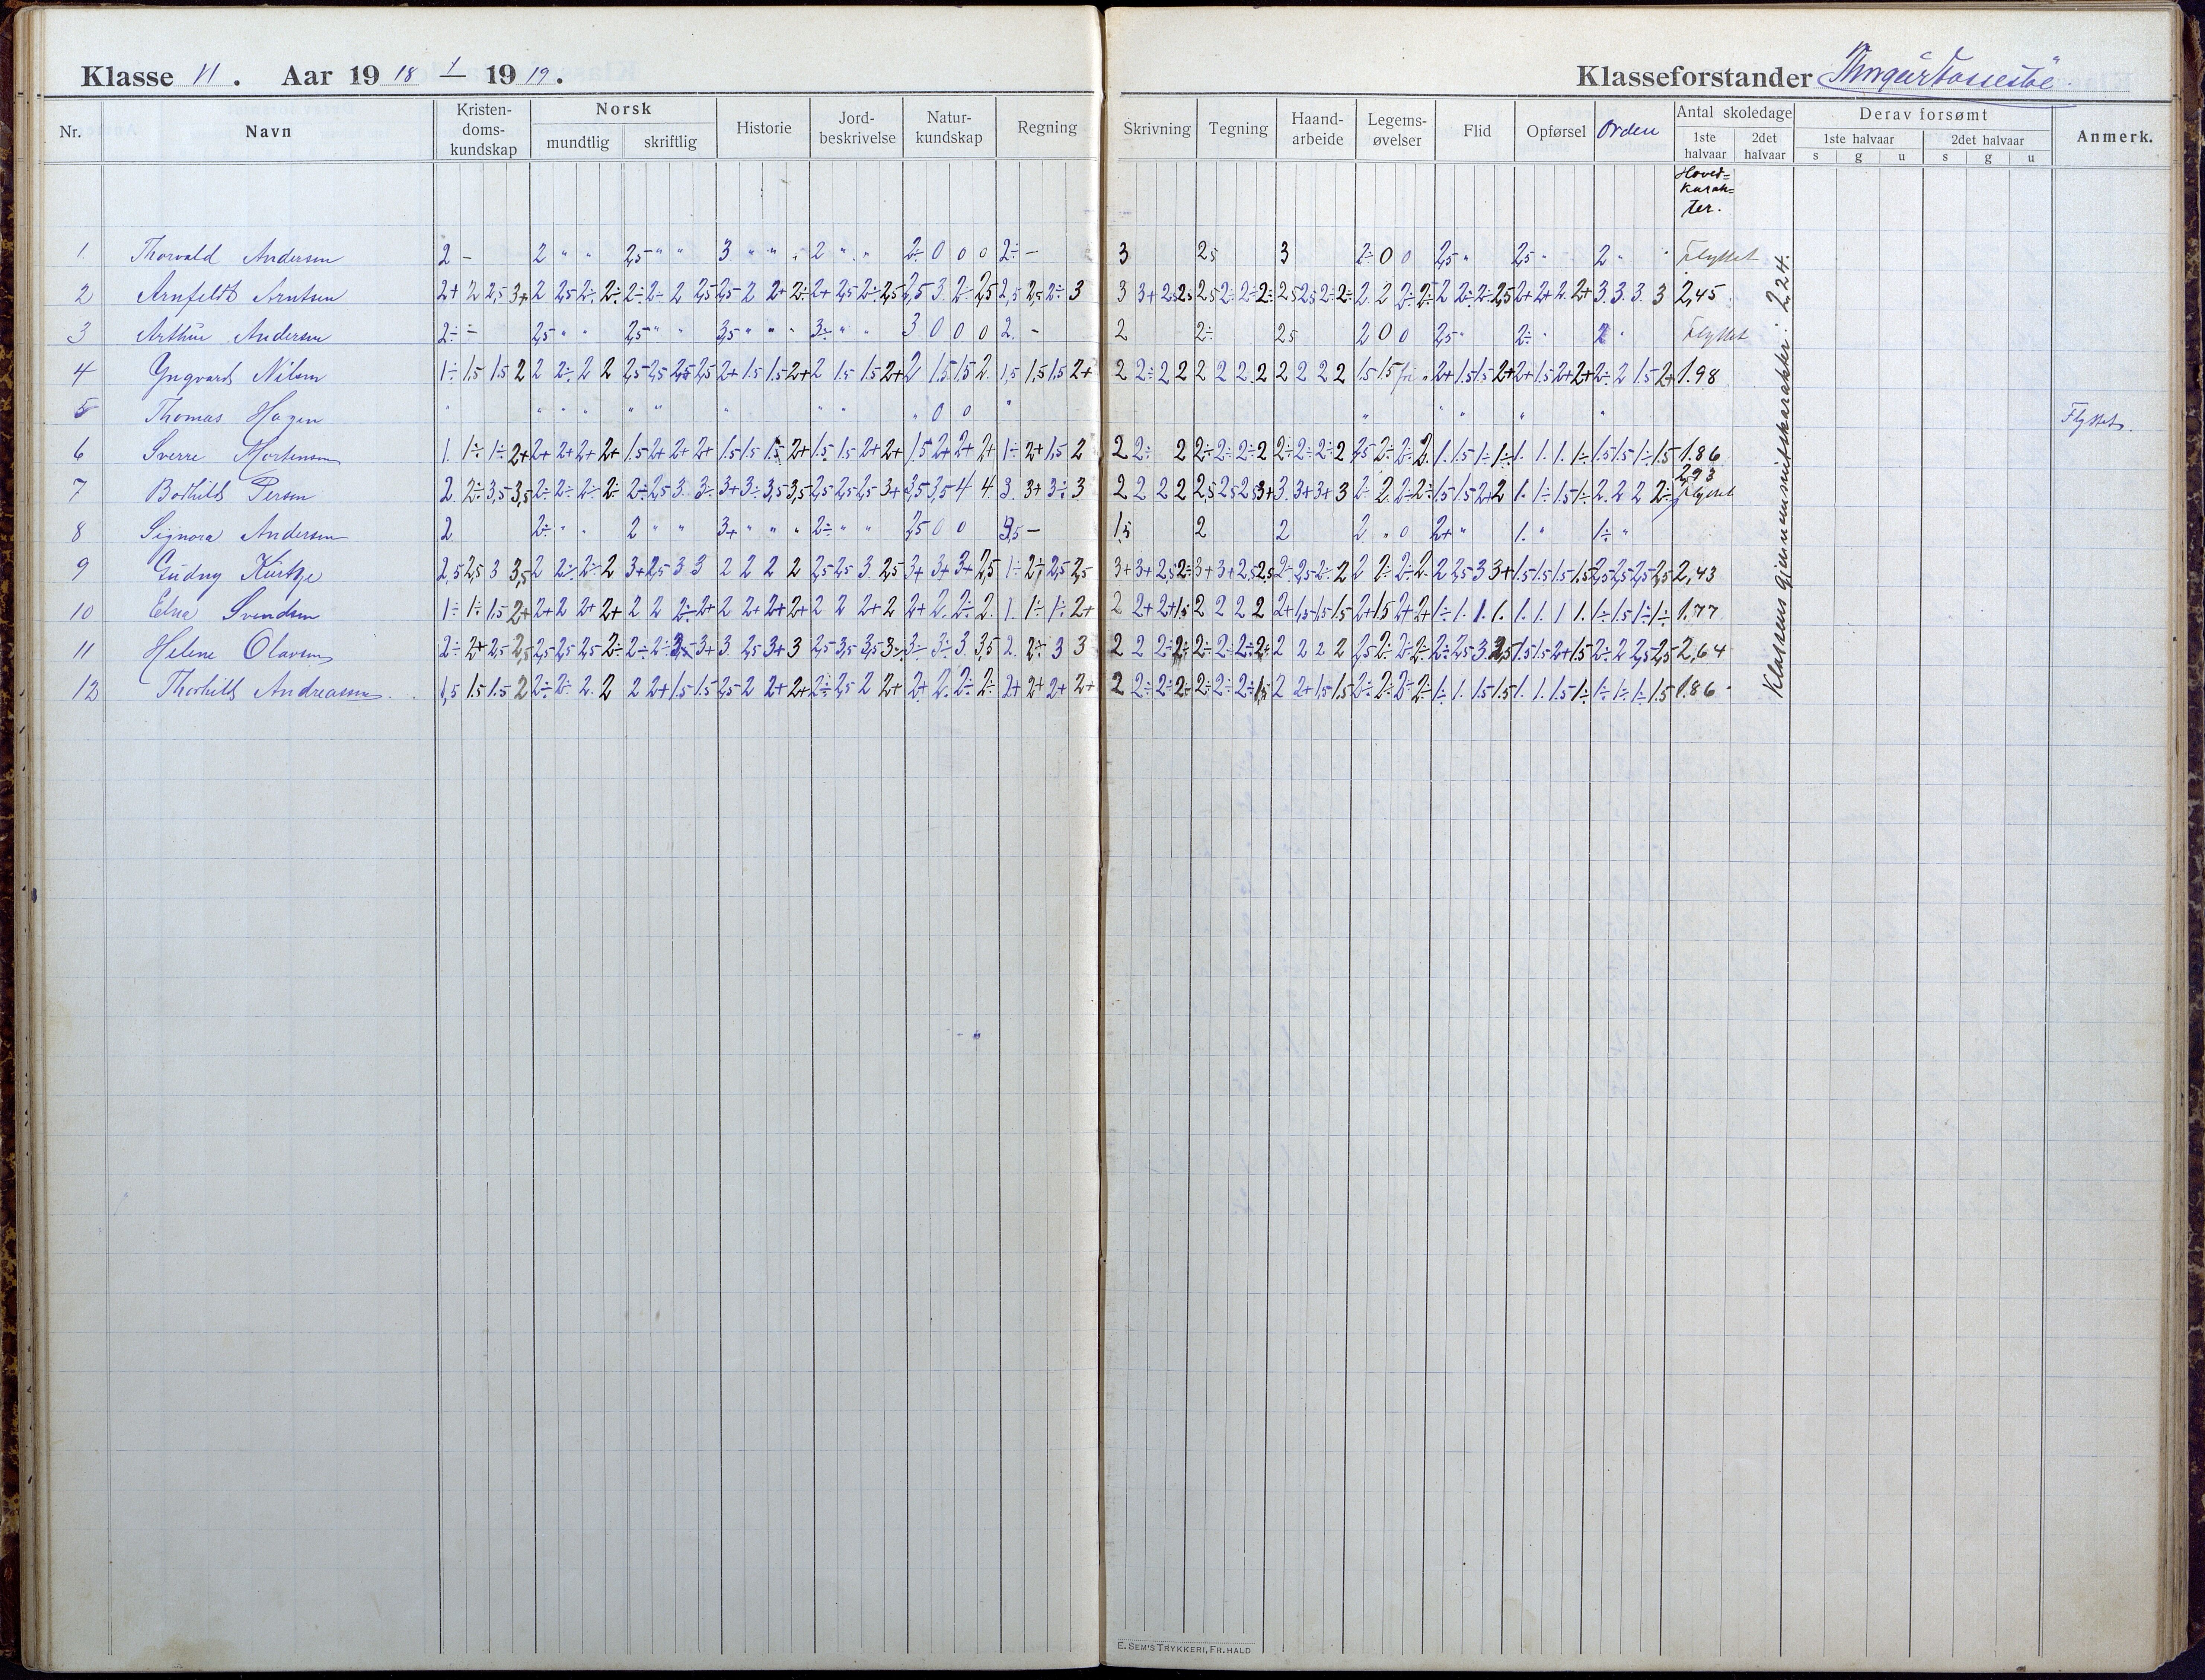 Klasse VI. Aar 1918 - 1919.
Klasseforstander
Nr. Navn Kristendoms-kundskap Norsk mundtlig skriftlig Historie Jord-beskrivelse Natur-kundskap Regning Skrivning Tegning Haand-arbeide Legems-øvelser Flid Opførsel Orden Antal skoledage 1ste halvaar 2det halvaar Derav forsømt 1ste halvaar s g u 2det halvaar s g u Anmerk.
Hoved=
karak=
ter.
1. Thorvald Andersen 2 - 2 " " 2,5 " " 3 " " " 2 " " 2÷ 0 0 0 2÷ - 3 2,5 3 2÷ 0 0 2,5 " 2,5 " 2 " Flyttet
2 Arnfeldt Arntsen 2+ 2 2,5 3+ 2 2,5 2÷ 2÷ 2÷ 2÷ 2 2,5 2,5 2 2+ 2÷ 2+ 2,5 2÷ 2,5 2,5 3 2÷ 2,5 2,5 2,5 2÷ 3 3 3+ 2,5 2,5 2,5 2÷ 2÷ 2÷ 2,5 2,5 2÷ 2÷ 2 2 2÷ 2÷ 2 2÷ 2÷ 2,5 2+ 2+ 2 2+ 3 3 3 3 2,45
3 Arthur Andersen 2÷ - 2,5 " " 2,5 " " 3,5 " " " 3÷ " " 3 0 0 0 2. - 2 2÷ 2,5 2 0 0 2,5 " 2÷ " 2 " Flyttet
4 Yngvard Nilsen 1÷ 1,5 1,5 2 2 2÷ 2 2 2,5 2,5 2,5 2,5 2+ 1,5 1,5 2+ 2 1,5 1,5 2+ 2 1,5 1,5 2 1,5 1,5 1,5 2+ 2 2÷ 2 2 2 2 2 2 2 2 2 2 1,5 1,5 fri " 2+ 1,5 1,5 2+ 2+ 1,5 2+ 2+ 2÷ 2 1,5 2+ 1.98
5 Thomas Hagen " " " " " " " " " " " 0 0 " " " " " " Flyttet.
6 Sverre Mortensen 1. 1÷ 1÷ 2+ 2+ 2+ 2+ 2+ 1,5 2+ 2+ 2+ 1,5 1,5 1,5 2+ 1,5 1,5 2+ 2+ 1,5 2+ 2+ 2+ 1÷ 2+ 1,5 2 2 2÷ 2 2÷ 2÷ 2÷ 2 2÷ 2÷ 2÷ 2 2,5 2÷ 2÷ 2 1. 1,5 1÷ 1÷ 1. 1. 1. 1÷ 1,5 1,5 1÷ 1,5 1.86
7 Bodhild Persen 2 2÷ 3,5 3,5 2÷ 2÷ 2÷ 2÷ 2÷ 2,5 3 3÷ 3+ 3÷ 3,5 3,5 2,5 2,5 2,5 3+ 3,5 3,5 4 4 3. 3+ 3÷ 3 2 2 2 2 2,5 2,5 2,5 3+ 3 3+ 3+ 3 2÷ 2 2÷ 2÷ 1,5 1,5 2+ 2 1. 1÷ 1,5 1÷ 2 2 2 2÷ 2,93 Flyttet
8 Signora Andersen 2 2÷ " " 2 " " 3+ " " " 2÷ " " 2,5 0 0 3,5 - 1,5 2 2 2 " 0 2+ " 1. " 1÷ "
9 Gudny Kirkøe 2,5 2,5 3 3,5 2 2÷ 2÷ 2 3+ 2,5 3 3 2 2 2 2 2,5 2,5 3 2,5 3+ 3+ 3+ 2,5 1÷ 2÷ 2,5 2,5 3+ 3+ 2,5 2÷ 3+ 3+ 2,5 2,5 2÷ 2,5 2÷ 2 2 2÷ 2÷ 2÷ 2 2,5 3 3+ 1,5 1,5 1,5 1,5 2,5 2,5 2,5 2,5 2,43
10 Elna Svendsen 1÷ 1÷ 1,5 2+ 2+ 2 2+ 2+ 2 2 2÷ 2+ 2 2+ 2+ 2+ 2 2 2+ 2 2+ 2 2÷ 2 1. 1÷ 1÷ 2+ 2 2+ 2+ 1,5 2 2 2 2 2+ 1,5 1,5 1,5 2+ 1,5 2+ 2+ 1÷ 1. 1. 1. 1. 1. 1 1. 1÷ 1,5 1÷ 1÷ 1.77
11 Helene Olavsen 2÷ 2+ 2,5 2,5 2,5 2,5 2,5 2÷ 2÷ 2÷ 3÷ 3+ 3 2,5 3+ 3 2,5 3,5 3,5 3÷ 3÷ 3÷ 3 3,5 2. 2÷ 3 3 2 2 2÷ 2÷ 2÷ 2÷ 2÷ 2÷ 2 2 2 2 2,5 2÷ 2÷ 2÷ 2÷ 2,5 3 2,5 1,5 1,5 2+ 1,5 2÷ 2 2,5 2,5 2,64
12 Thorhild Andreasen 1,5 1,5 1,5 2 2÷ 2÷ 2 2 2 2+ 1,5 1,5 2,5 2 2+ 2+ 2÷ 2,5 2 2+ 2+ 2 2÷ 2÷ 2+ 2+ 2+ 2+ 2 2÷ 2÷ 2÷ 2÷ 2÷ 2÷ 1,5 2 2+ 1,5 1,5 2÷ 2÷ 2÷ 2÷ 1÷ 1. 1,5 1,5 1. 1. 1,5 1÷ 1÷ 1÷ 1÷ 1,5 1.86
Klassens gjennemsnitskarakter: 2,24.
E. SEM'S TRYKKERI, FR.HALD